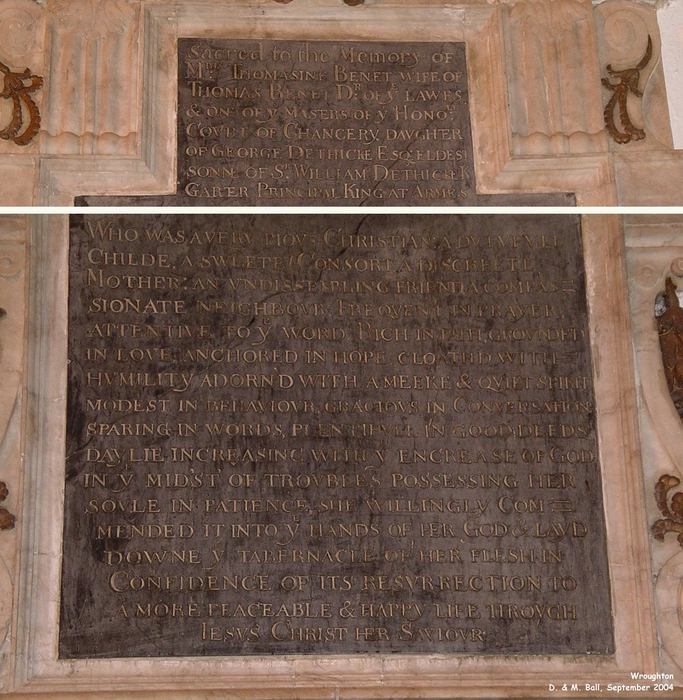 Sacred to the Memory of
Mrs Thomasine Benet, wife of
Thomas Benet Dr of ye Lawes
& one of ye Masters of ye Honoble
Covrt of Chancery, davgher
of George Dethicke Esq eldest
sonne of Sr William Dethicke Kt
Garter Principal King at Armes
Who was a very piovs Christian, a dvtyfvll
Childe, a sweete Consort, a discreete
Mother; an vndissembling friend, a compas=
sionate neighbovr. Freqvent in prayer,
attentive to ye word, Rich in faith, grovnded
in love, anchored in hope, cloath'd with
hvmility, adorn'd with a meeke & qviet spirit
modest in behaviovr, graciovs in Conversation
sparing in words, plentifvll in good deeds
daylie increasing with ye encrease of God
in ye mid'st of trovbles possessing her
sovle in patience, she willingly com=
mended it into ye hands of her God & layd
downe ye tabernacle of her flesh in
Confidence of its resvrrection to
a more peaceable & happy life throvgh
Iesvs Christ her Saviovr.
Wroughton
D. & M. Ball, September 2004